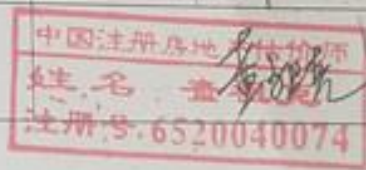 中国注册房地产估价师
姓名 董
注册号.6520040074